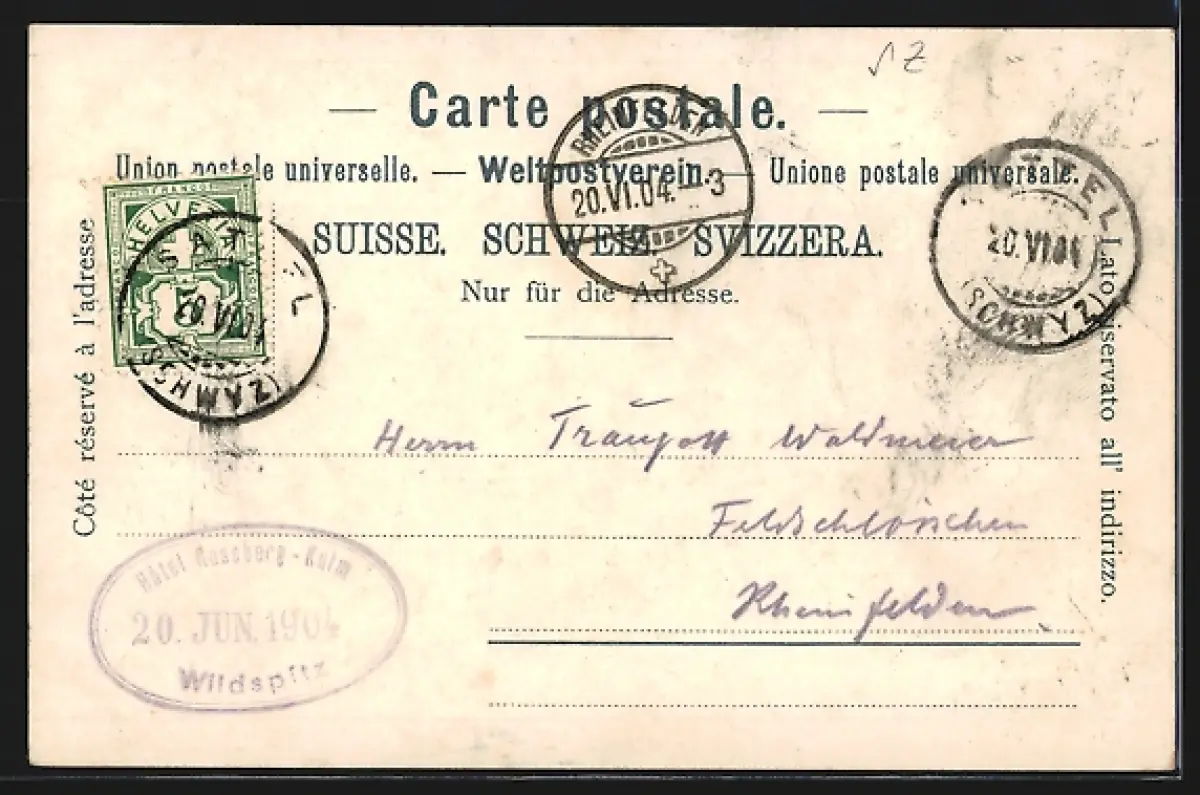 SZ
— Carte postale. —
Union postale universelle. — Weltpostverein. — Unione postale universale.
RHEINFELDEN
20.VI.04. — 3
SATTEL
20.VI.04
(SCHWYZ)
FRANCO
HELVETIA
5
SATTEL
(SCHWYZ)
SUISSE. SCHWEIZ. SVIZZERA.
Nur für die Adresse.
Côté réservé à l'adresse
Lato riservato all' indirizzo.
Herrn Traugott Waldmeier
Feldschlösschen
Rheinfelden
Hôtel Rossberg-Kulm
20. JUN. 1904
Wildspitz